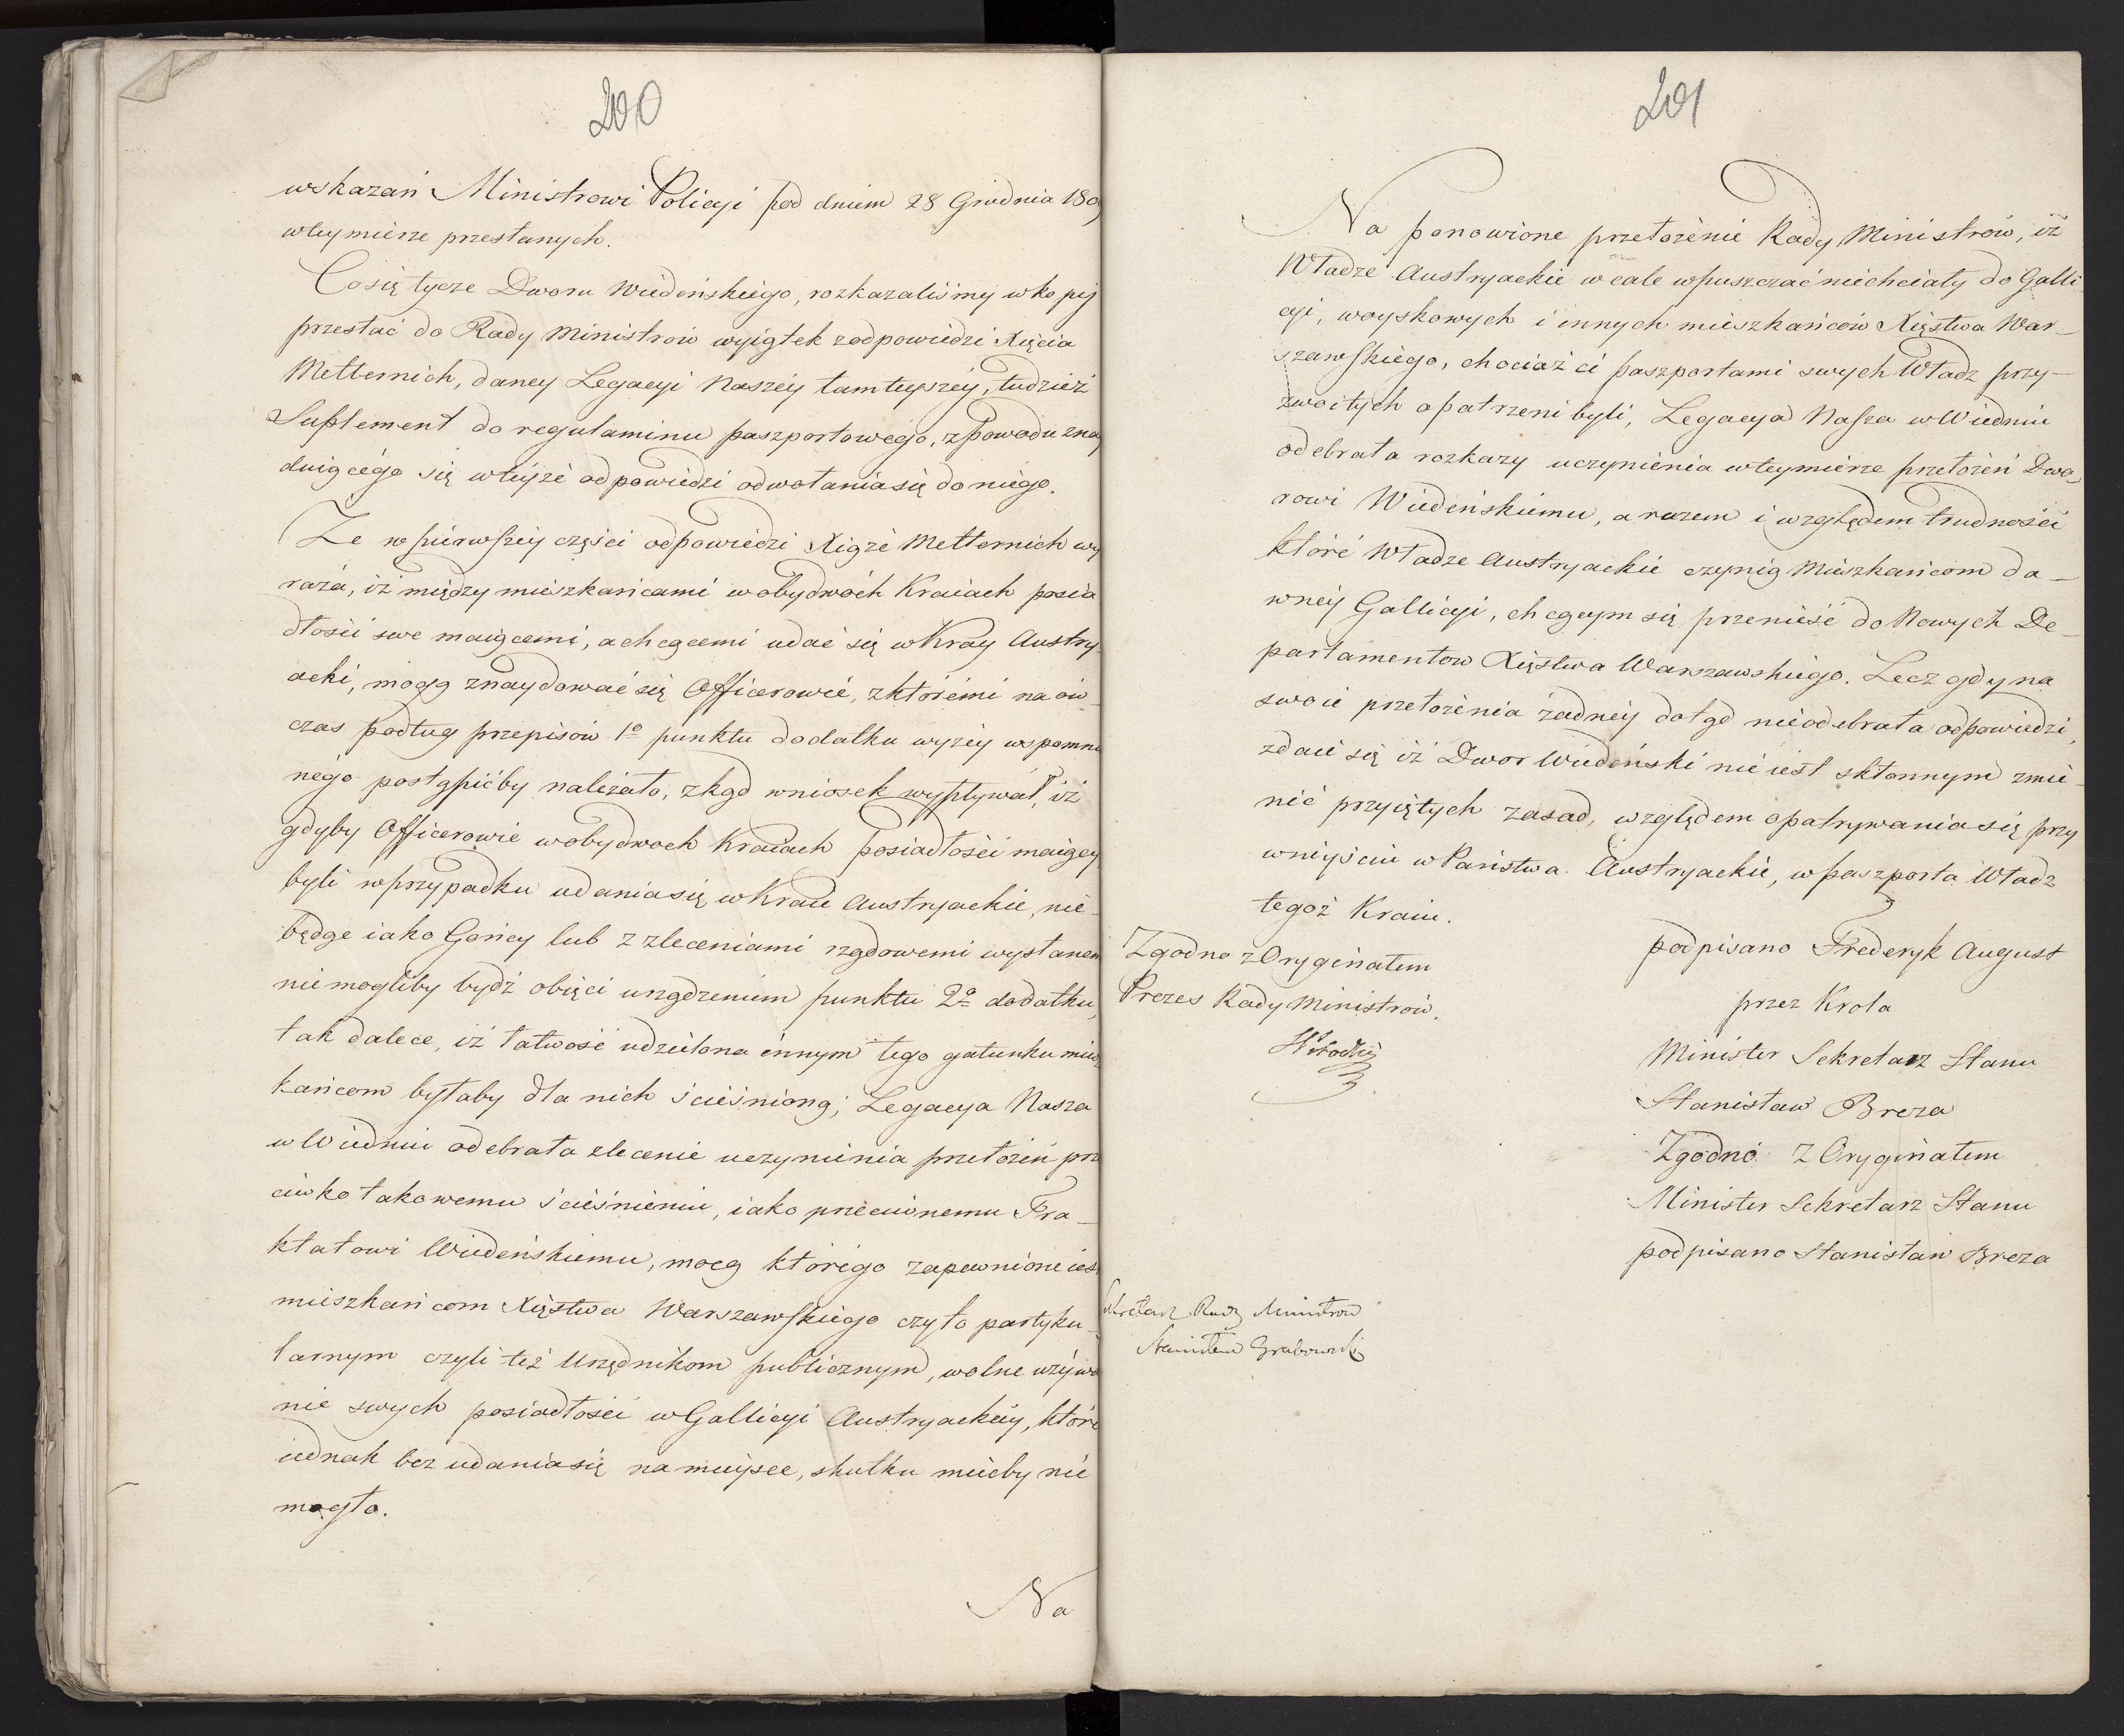 200
wskazań Ministrowi Policyi pod dniem 28 Grudnia 1809
wteymierze przesłanych.
Co się tycze Dworu Wiedeńskiego, rozkazaliśmy w kopij
przesłać do Rady Ministrow wyiątek zodpowiedzi Xięcia
Metternich, daney Legacyi Naszéy tamteyszéy, tudzież
Suplement do regulaminu paszportowego, zpowodu znay
duiącégo się wtéyże odpowiedzi odwołania się do niégo.
Ze w piérwszéy części odpowiedzi Xiąże Metternich wy
raża, iż między mieszkańcami w obydwóch Kraiach posia
dłości swe maiącemi, a chcącemi udać się w Kray Austry
acki, mogą znaydować się Officerowie, z którémi na ów
czas podług przepisów 1º punktu dodatku wyżéy wspomnio
négo postąpićby należało, zkąd wniosek wypływał, iż
gdyby Officerowie w obydwoch Kraiach posiadłości maiący
byli w przypadku udania się w Kraie Austryackie, nie
będąc iako Gońcy lub z zleceniami rządowemi wysłanemi
nie mogliby bydź obięci urządzeniem punktu 2º dodatku,
tak dalece, iż łatwość udzielona innym tego gatunku miesz
kańcom byłaby dla nich ścieśnioną; Legacya Nasza
w Wiedniu odebrała zlecenie uczynienia przełożeń prze
ciwko takowemu ścieśnieniu, iako przeciwnemu Tra-
ktatowi Wiedeńskiemu, mocą którégo zapewnione iest
mieszkańcom Xięstwa Warszawskiégo czyto partyku-
larnym czyli też Urzędnikom publicznym, wolne używa
nie swych posiadłości w Gallicyi Austryackiéy, które
iednak bez udania się na mieysce, skutku miećby nie
mogło.
Na
201
Na ponowione przełożenie Rady Ministrów, iż
Władze Austryackie wcale wpuszczać niechciały do Galli
cyi, woyskowych i innych mieszkańców Xięstwa War-
szawskiégo, chociaż ci paszportami swych Władz przy-
zwoitych opatrzeni byli, Legacya Nasza w Wiedniu
odebrała rozkazy uczynienia wteymierze przełożeń Dwo-
rowi Wiedeńskiemu, a razem i względem trudności
któré Władze Austryackie czynią Mieszkańcom da-
wnéy Gallicyi, chcącym się przenieść do Nowych De-
partamentow Xięstwa Warszawskiego. Lecz gdy na
swoie przełożenia żadnéy dotąd nieodebrała odpowiedzi,
zdaie się iż Dwor Wiedeński nie iest skłonnym zmie-
nić przyiętych zasad, względem opatrywania się przy
wniyściu w Państwa Austryackie, w paszporta Władz
tegoż Kraiu.
podpisano Frederyk August
przez Krola
Minister Sekretarz Stanu
Stanisław Breza
Zgodno z Oryginałem
Minister Sekretarz Stanu
podpisano Stanisław Breza
Zgodno z Oryginałem
Prezes Rady Ministrów.
Sekretarz Rady Ministrow
Stanisław Grabowski